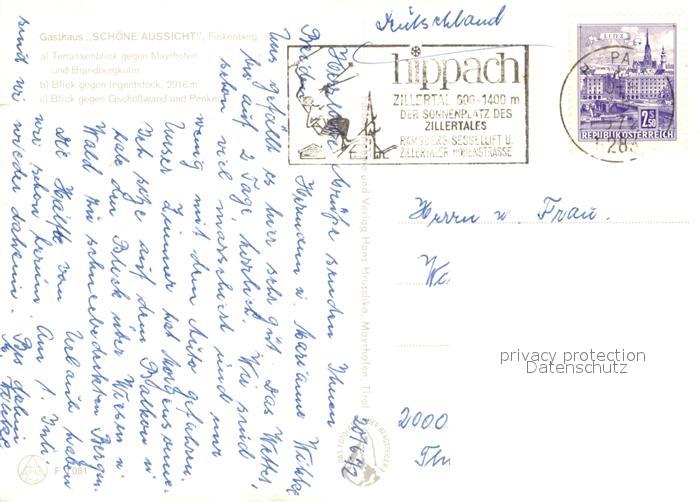 Gasthaus „SCHÖNE AUSSICHT", Finkenberg
a) Terrassenblick gegen Mayrhofen
und Brandbergkolm
b) Blick gegen Ingentstöck, 2916 m
c) Blick gegen Gschößwand und Penken
Deutschland
hippach
ZILLERTAL 600-1400 m
DER SONNENPLATZ DES
ZILLERTALES
RAMSBERG-SESSELLIFT U.
ZILLERTALER HÖHENSTRASSE
LINZ
2.50
REPUBLIK ÖSTERREICH
Herrn u. Frau
privacy protection
Datenschutz
2000
Herzliche Grüße senden Ihnen
Hermann u. Marianne
Uns gefällt es hier sehr gut. Das Wetter
bis auf 2 Tage herrlich. Wir sind
schon viel marschiert und nur
wenig mit dem Auto gefahren.
Unser Zimmer hat Morgensonne.
Ich sitze auf dem Balkon u.
habe den Blick über Wiesen u.
Wald zu schneebedeckten Bergen.
Die Hälfte vom Urlaub haben
wir schon herum. Am 1. Juli
sind wir wieder daheim. Bis dahin
und Verlag Hans Hruschka, Mayrhofen, Tirol